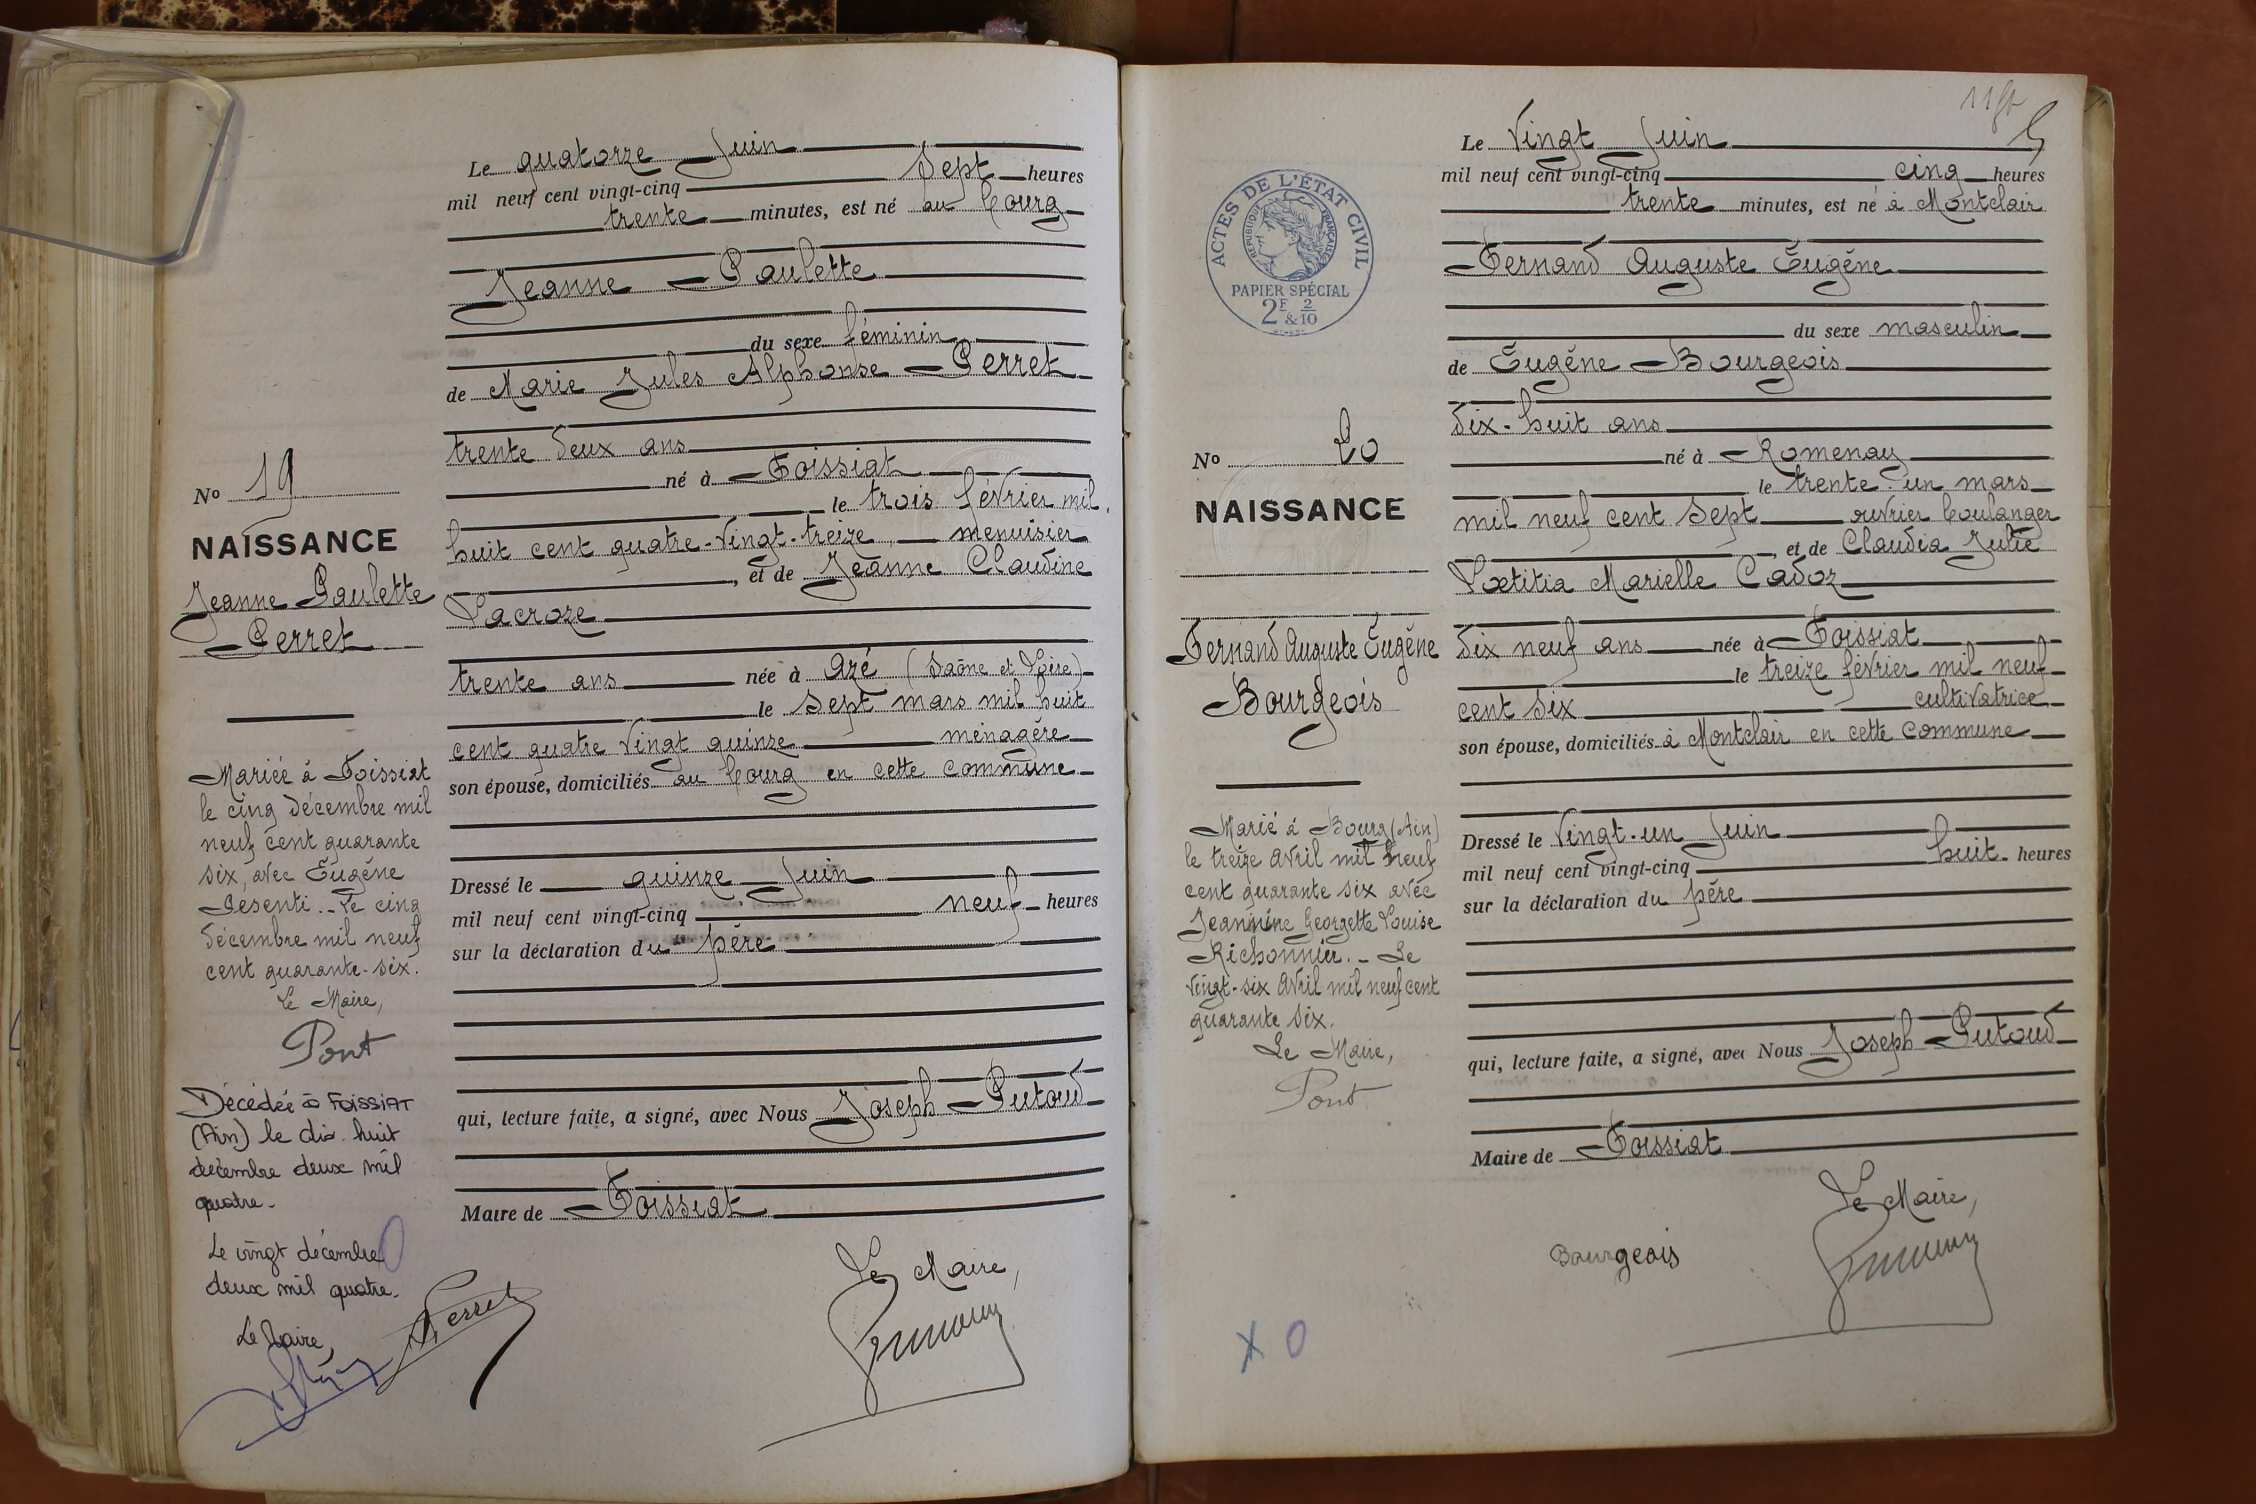 Le quatorze Juin
mil neuf cent vingt-cinq Sept heures
trente minutes, est né au bourg
Jeanne Paulette
du sexe féminin
de Marie Jules Alphonse Perret
trente deux ans
né à Foissiat
le trois février mil
huit cent quatre-vingt-treize, menuisier
, et de Jeanne Claudine
Lacroze
trente ans née à Azé (Saône et Loire)
le sept mars mil huit
cent quatre vingt quinze ménagère
son épouse, domiciliés au bourg en cette commune
Dressé le quinze Juin
mil neuf cent vingt-cinq neuf heures
sur la déclaration du père
qui, lecture faite, a signé, avec Nous Joseph Putoud
Maire de Foissiat
Le Maire,
Perret
No 19
NAISSANCE
Jeanne Paulette
Perret
Mariée à Foissiat
le cinq décembre mil
neuf cent quarante
six, avec Eugène
Le cinq
décembre mil neuf
cent quarante-six.
Le Maire,
Pont
Décédée à FOISSIAT
(Ain) le dix huit
décembre deux mil
quatre.
Le vingt décembre
deux mil quatre.
Le Maire,
Le Vingt Juin
mil neuf cent vingt-cinq cinq heures
trente minutes, est né à Montclair
Fernand Auguste Eugène
du sexe masculin
de Eugène Bourgeois
dix-huit ans
né à Romenay
le trente-un mars
mil neuf cent sept ouvrier boulanger
, et de Claudia Julie
Lœtitia Marielle Cadoz
dix neuf ans née à Foissiat
le treize février mil neuf
cent six cultivatrice
son épouse, domiciliés à Montclair en cette commune
Dressé le vingt-un Juin
mil neuf cent vingt-cinq huit heures
sur la déclaration du père
qui, lecture faite, a signé, avec Nous Joseph Putoud
Maire de Foissiat
Le Maire,
Bourgeois
ACTES DE L'ÉTAT CIVIL
RÉPUBLIQUE FRANÇAISE
PAPIER SPÉCIAL
2F & 2/10
No 20
NAISSANCE
Fernand Auguste Eugène
Bourgeois
Marié à Bourg (Ain)
le treize avril mil neuf
cent quarante six avec
Jeannine Georgette Louise
Richonnier. - Le
vingt-six avril mil neuf cent
quarante six.
Le Maire,
Pont
X 0